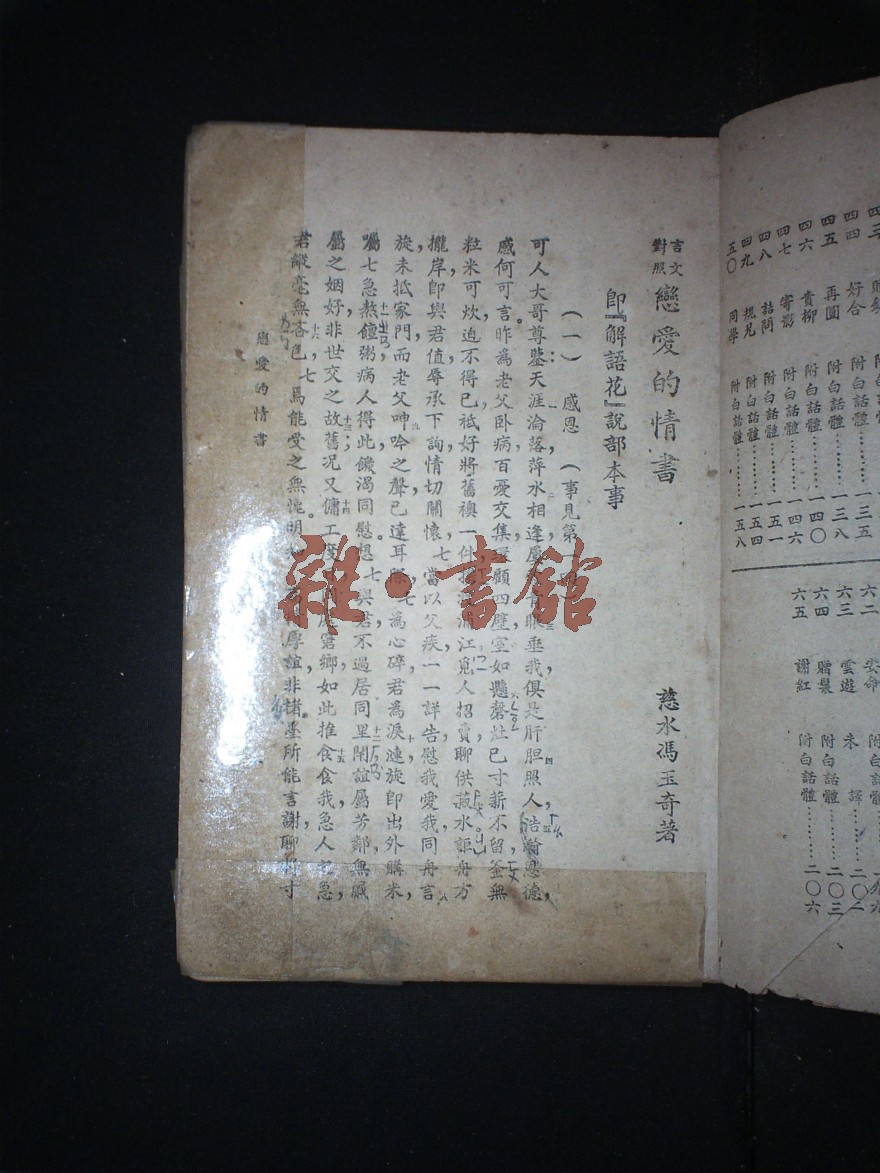 四六 貴柳 附白話體………一四〇
四七 寄影 附白話體………一四六
四八 詰問 附白話體………一五一
四九 規兄 附白話體………一五四
五〇 同學 附白話體………一五八
六三 雲遊 未譯………二〇二
六四 贈鬟 附白話體………二〇三
六五 謝紅 附白話體………二〇六
言文對照 戀愛的情書 慈水馮玉奇著
即『解語花』說部本事
(一) 感恩 (事見第一
可人大哥尊鑒天涯淪落萍水相逢 垂我俱是肝胆照人浩瀚恩德,
感何可言。昨為老父卧病百憂交集 顧四壁室如懸磬灶已寸薪不留釜無
粒米可炊迫不得已祇好將舊襖一件 浦江覓人招賣聊供菽水詎舟方
攏岸即與君值辱承下詢情切關懷七當以父疾一一詳告慰我愛我同舟言
旋未抵家門而老父呻吟之聲已達耳際七為心碎君為淚漣旋即出外購米,
囑七急熬饘粥病人得此饑渴同慰想七與君不過居同里閈誼屬芳鄰無戚
屬之姻好非世交之故舊況又傭工度 窘鄉如此推食食我急人之急
君縱毫無吝色七焉能受之無愧明知 厚誼非楮墨所能言謝聊 寸
戀愛的情書
雜·書館